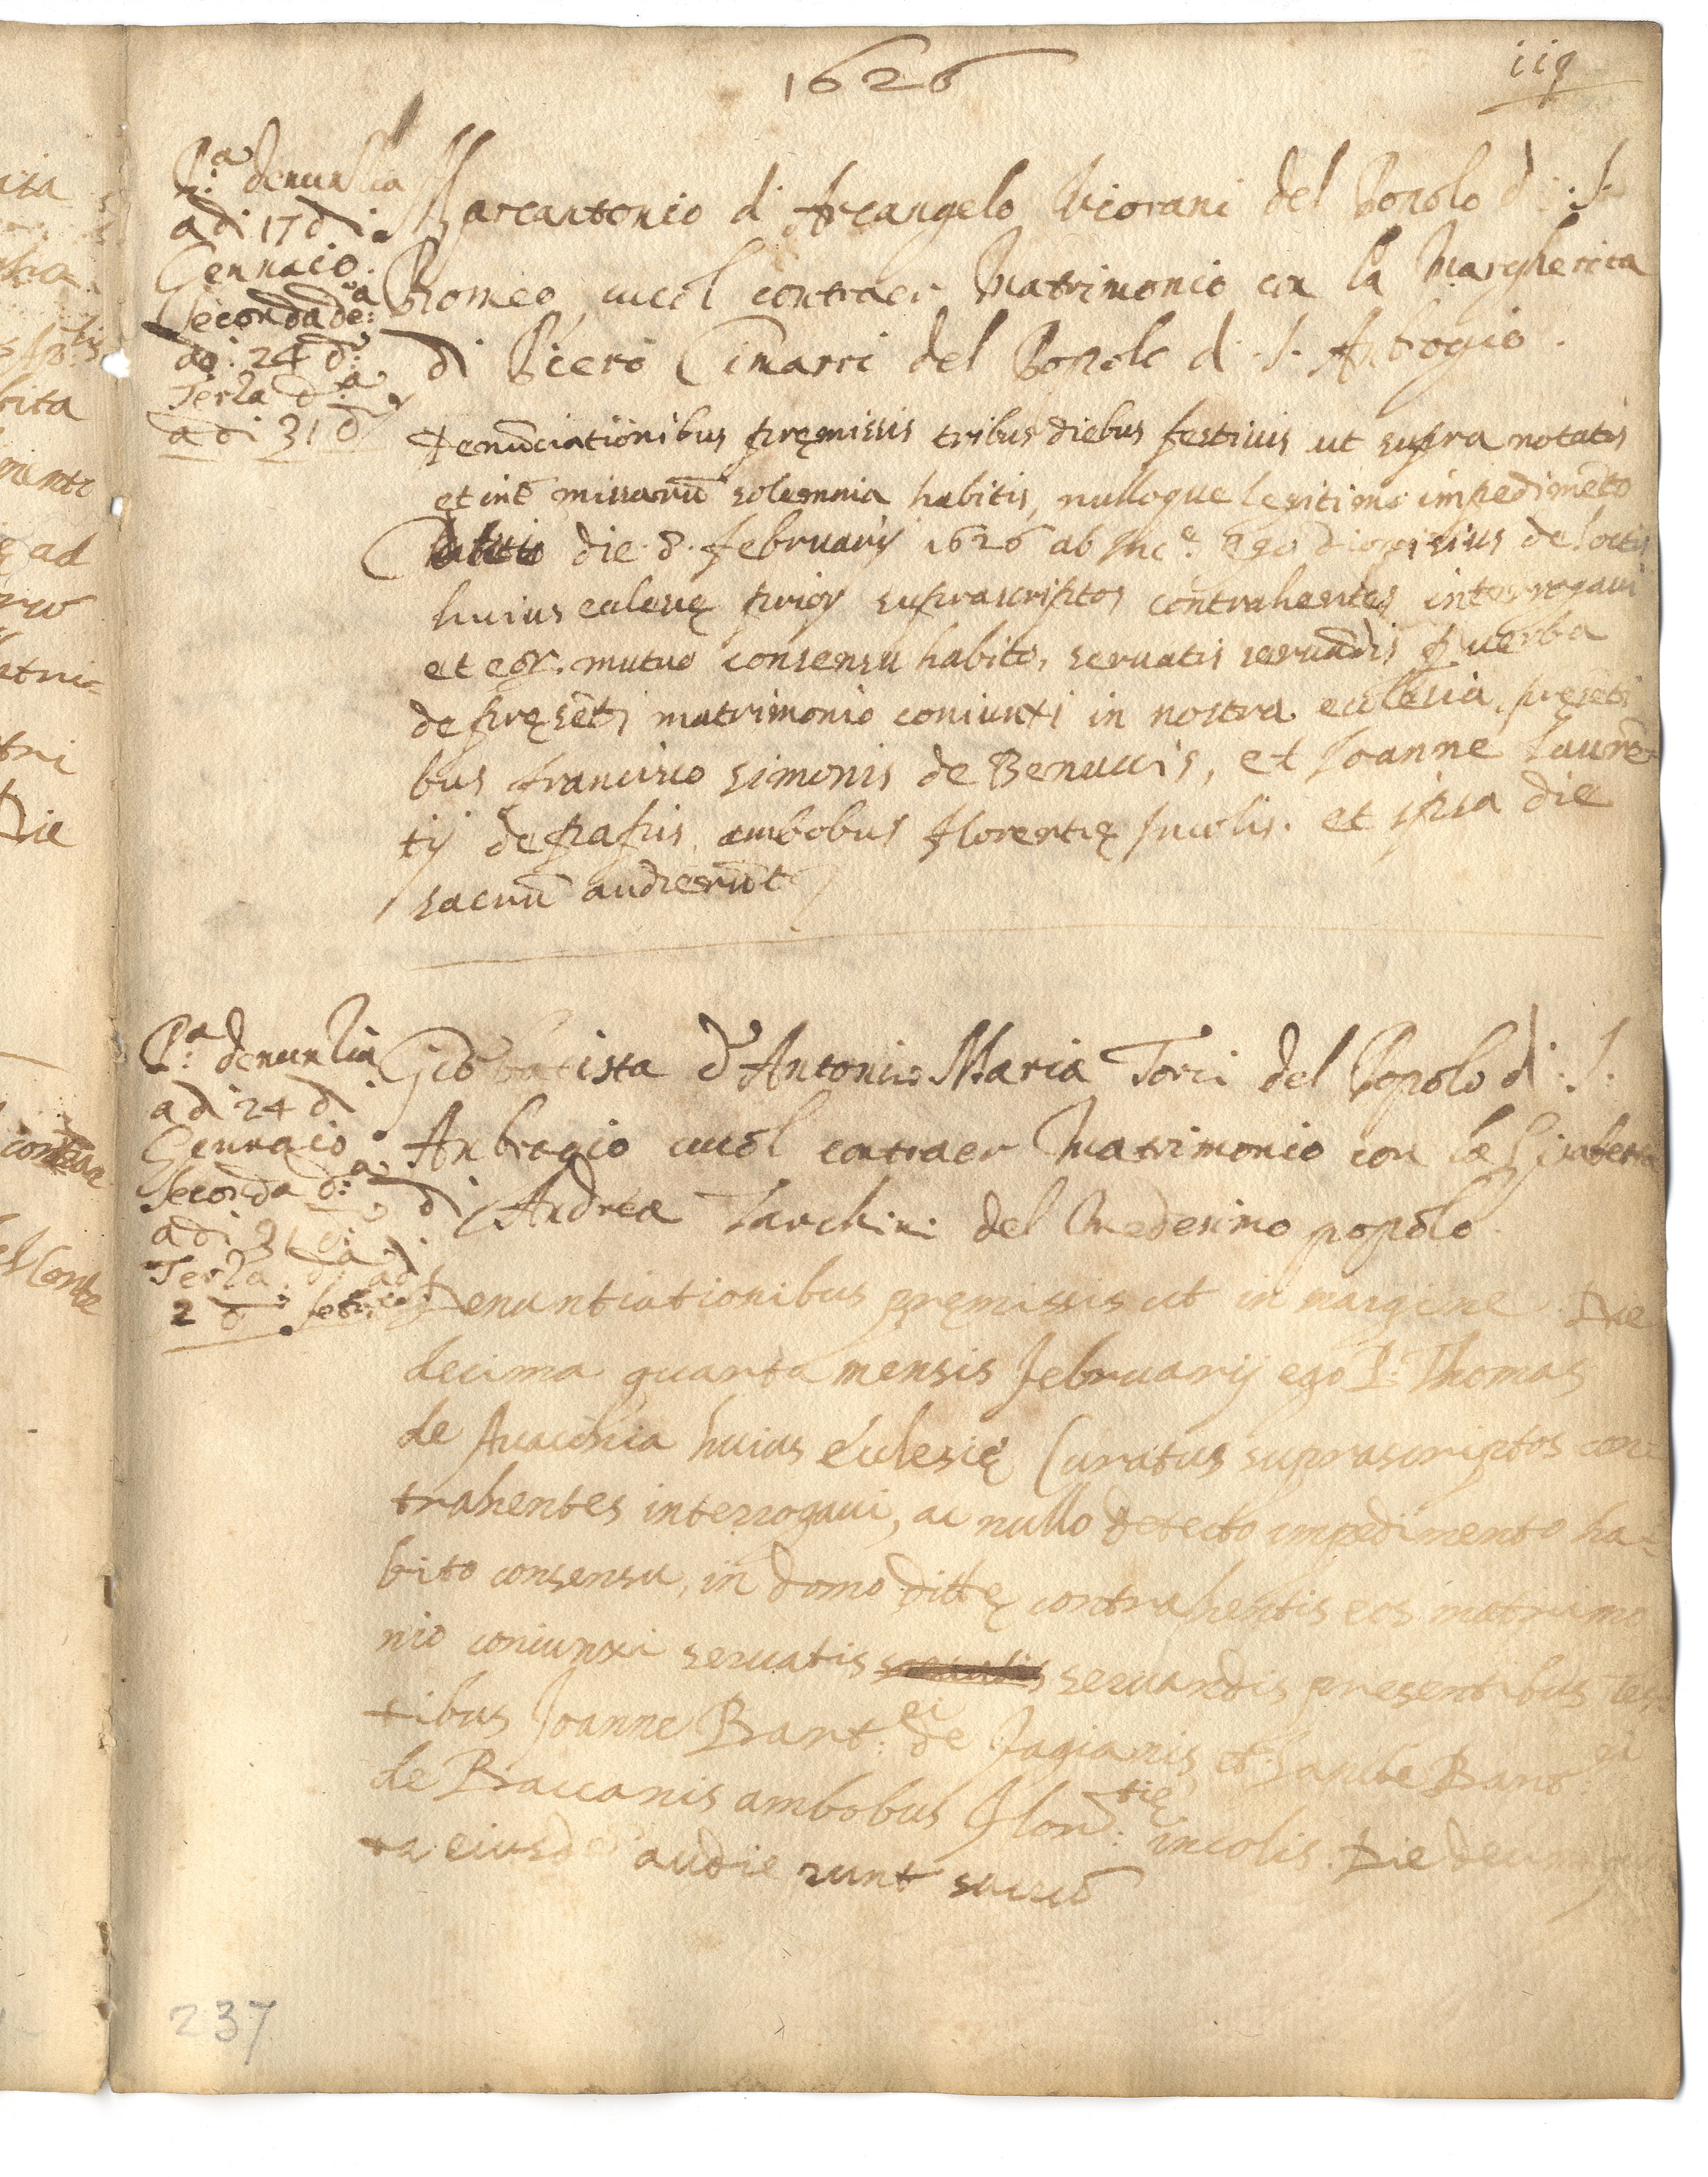 1626
119
P.a denuntia
adi 17 di
Gennaio.
Seconda de:a
adi. 24 d:
Terza d:a
adi 31 d
Marcantonio di Arcangelo Viorani del Popolo di S.
Romeo, vuol contraer Matrimonio con la Margherita
di Piero Cimarri del Popolo di S. Anbrogio.
Denunciationibus pręmissis tribus diebus festiuis ut supra notatis
et int̃ missarũ solemnia habitis, nulloque legitimo impedimẽto
die 8. februarij 1626 ab Inc.e Ego Dionisius de
huius ecclesię prior suprascriptos contrahentes interrogaui
et eor. mutuo consensu habito, seruatis seruãdis p uerba
de pręsẽti matrimonio coniunxi in nostra ecclesia, presẽti
bus francisco simonis de Benuccis, et Ioanne Laurẽ-
tij de papiis, ambobus florentię Incolis. et ipsa die
sacrũ audierũt
P.a denuntia
adi 24 di
Gennaio.
Seconda d:a
adi 31 d:
Terza d:a adi
2 d: feb:
Gio batista d'Antonio Maria Torci del Popolo di S.
Anbrogio vuol contraer Matrimonio con la Ginberta
di Andrea Tarchini del Medesimo popolo.
Denuntiationibus pręmissis ut in margine. Die
decima quarta mensis februarij ego P. Thomas
de huius ecclesię Curatus suprascriptos con=
trahentes interrogaui, ac nullo detecto impedimento ha=
bito consensu, in domo dittę contrahentis eos matrimo
nio coniunxi seruatis seruandis presentibus tes
tibus Joanne Bart:ei de Fagianis et Sancte Bart:ei
de Braccanis ambobus Flor:tię incolis. Die decima
ta eiusdẽ audierunt sacrũ
237